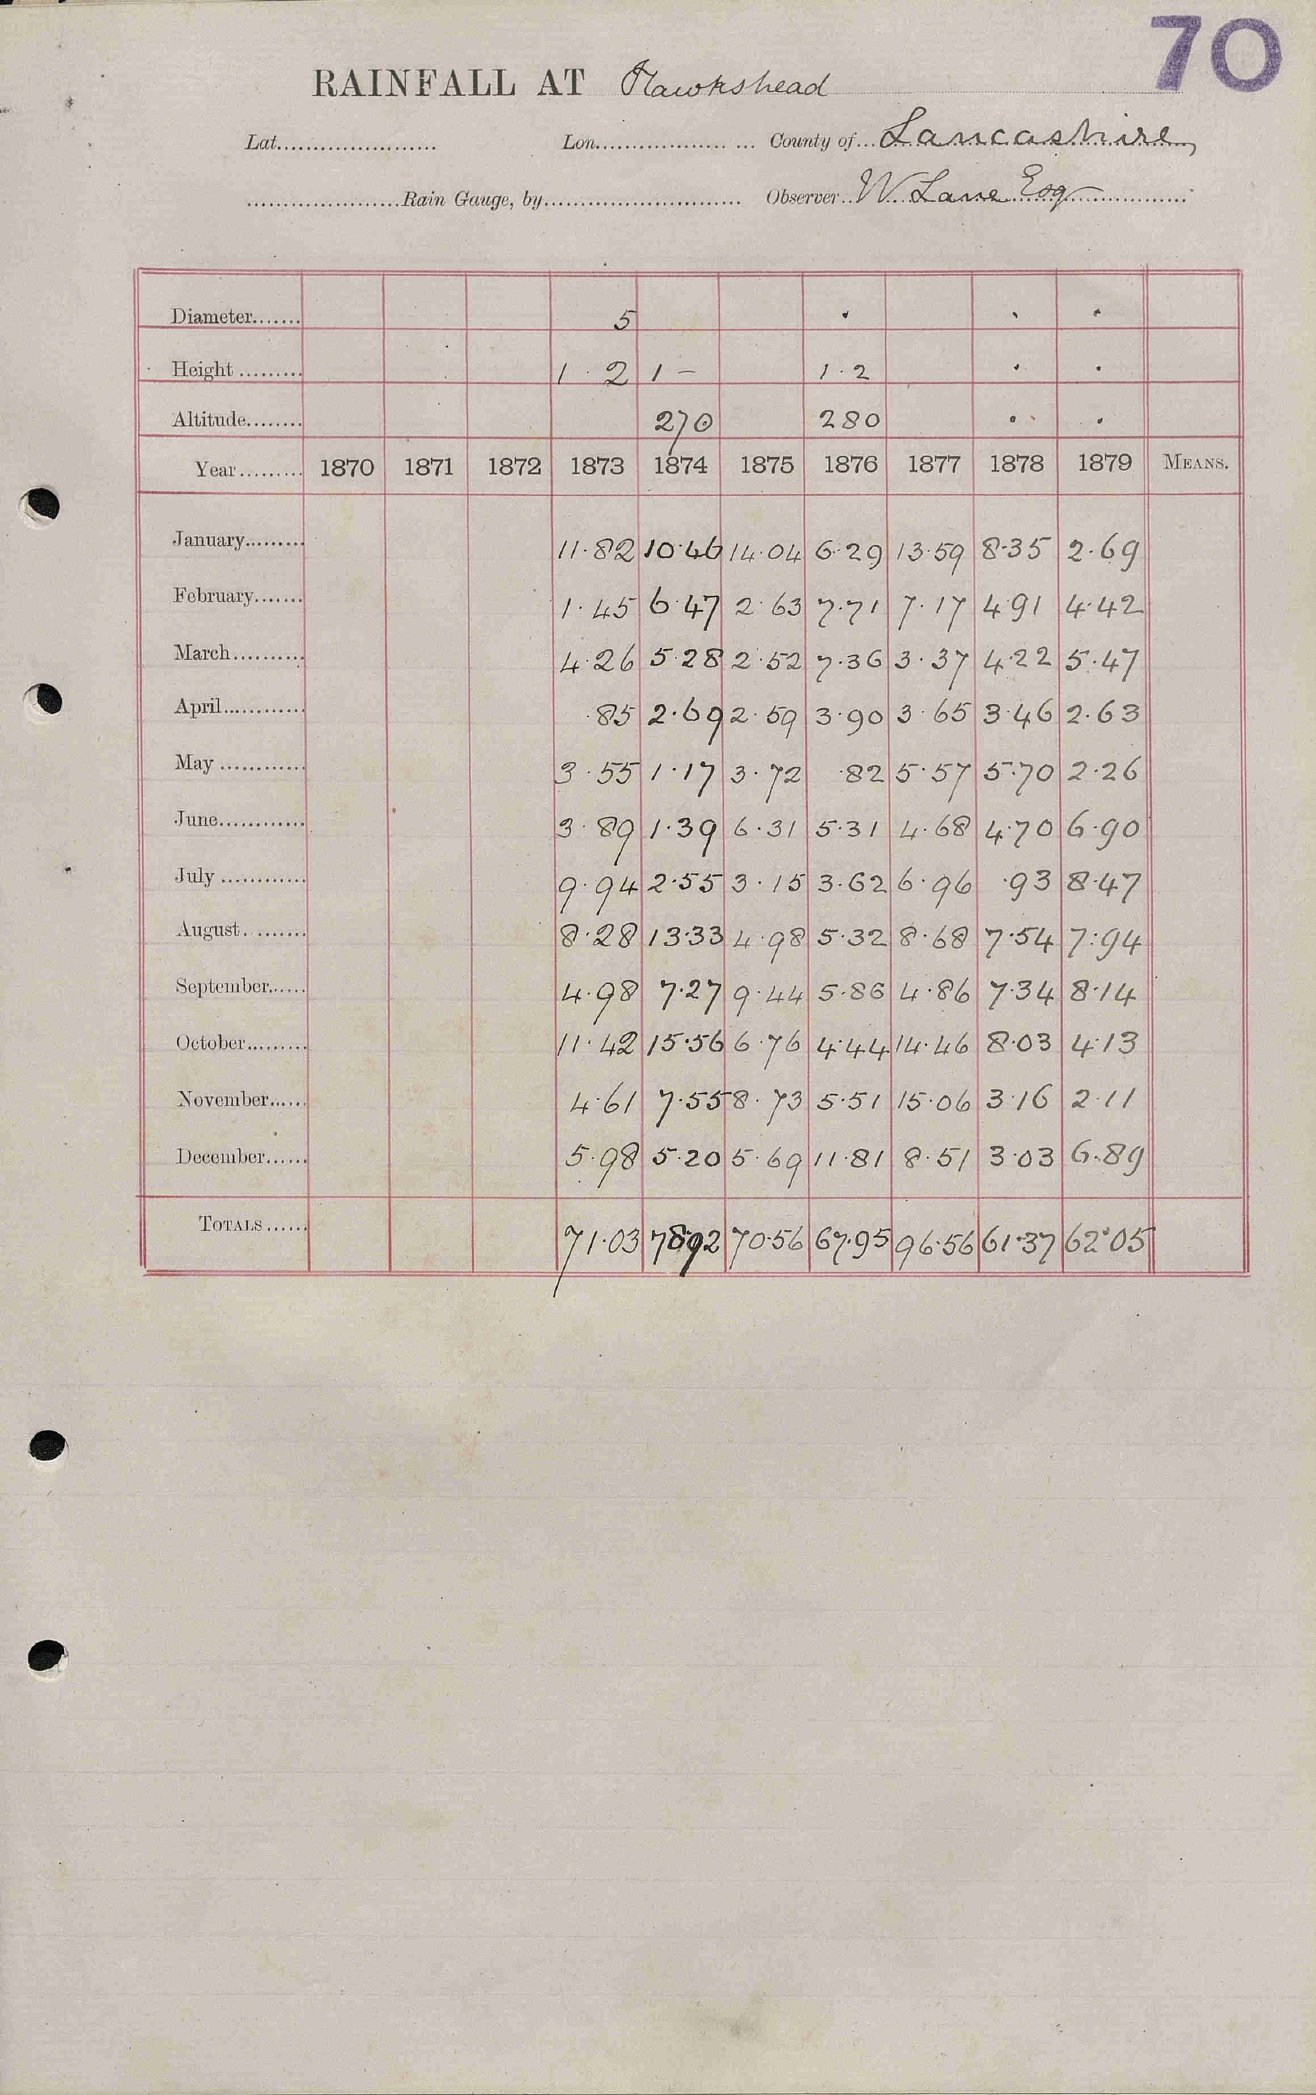 70
RAINFALL AT Hawkshead
Lat...................... Lon.................. ... County of... Lancashire
.....................Rain Gauge, by........................... Observer.. W Lane Esq
Diameter....... 5
Height ......... 1 · 2 1 – 1 · 2
Altitude........ 270 280
Year......... 1870 1871 1872 1873 1874 1875 1876 1877 1878 1879 MEANS.
January......... 11·82 10·46 14·04 6·29 13·59 8·35 2·69
February....... 1·45 6·47 2·63 7·71 7·17 4·91 4·42
March.......... 4·26 5·28 2·52 7·36 3·37 4·22 5·47
April............ ·85 2·69 2·59 3·90 3·65 3·46 2·63
May ............ 3·55 1·17 3·72 ·82 5·57 5·70 2·26
June............ 3·89 1·39 6·31 5·31 4·68 4·70 6·90
July ............ 9·94 2·55 3·15 3·62 6·96 ·93 8·47
August......... 8·28 13·33 4·98 5·32 8·68 7·54 7·94
September...... 4·98 7·27 9·44 5·86 4·86 7·34 8·14
October......... 11·42 15·56 6·76 4·44 14·46 8·03 4·13
November...... 4·61 7·55 8·73 5·51 15·06 3·16 2·11
December...... 5·98 5·20 5·69 11·81 8·51 3·03 6·89
TOTALS...... 71·03 78·92 70·56 67·95 96·56 61·37 62·05